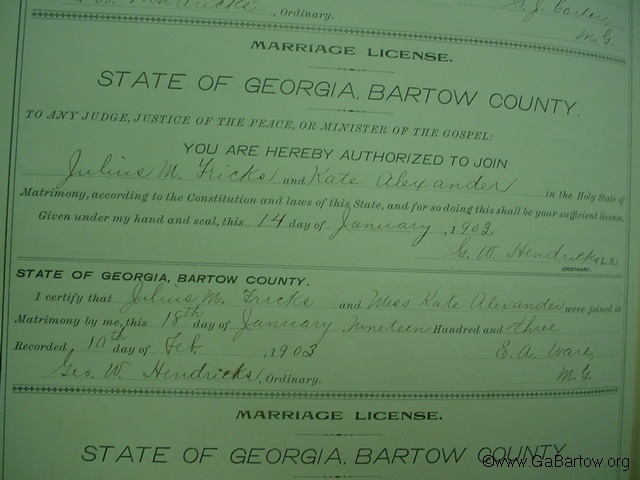 Hendricks, Ordinary.
G. J. Carter,
M.G.
MARRIAGE LICENSE.
STATE OF GEORGIA, BARTOW COUNTY.
TO ANY JUDGE, JUSTICE OF THE PEACE, OR MINISTER OF THE GOSPEL:
YOU ARE HEREBY AUTHORIZED TO JOIN
Julius M. Fricks and Kate Alexander in the Holy State of
Matrimony, according to the Constitution and laws of this State, and for so doing this shall be your sufficient license.
Given under my hand and seal, this 14 day of January, 1903,
G. W. Hendricks (L. S.)
ORDINARY.
STATE OF GEORGIA, BARTOW COUNTY.
I certify that Julius M. Fricks and Miss Kate Alexander were joined in
Matrimony by me, this 18th day of January Nineteen Hundred and three
Recorded, 10th day of Feb. , 1903 E. A. Ware,
Geo. W. Hendricks, Ordinary. M.G.
MARRIAGE LICENSE.
STATE OF GEORGIA, BARTOW COUNTY
©www.GaBartow.org